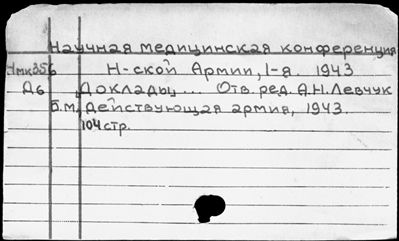 Научная медицинская конференция
Нмк356 Н-ской Армии, 1-я. 1943
Д6 Доклады... Отв. ред. А.Н. Левчук
Б.м, Действующая армия, 1943.
104 стр.